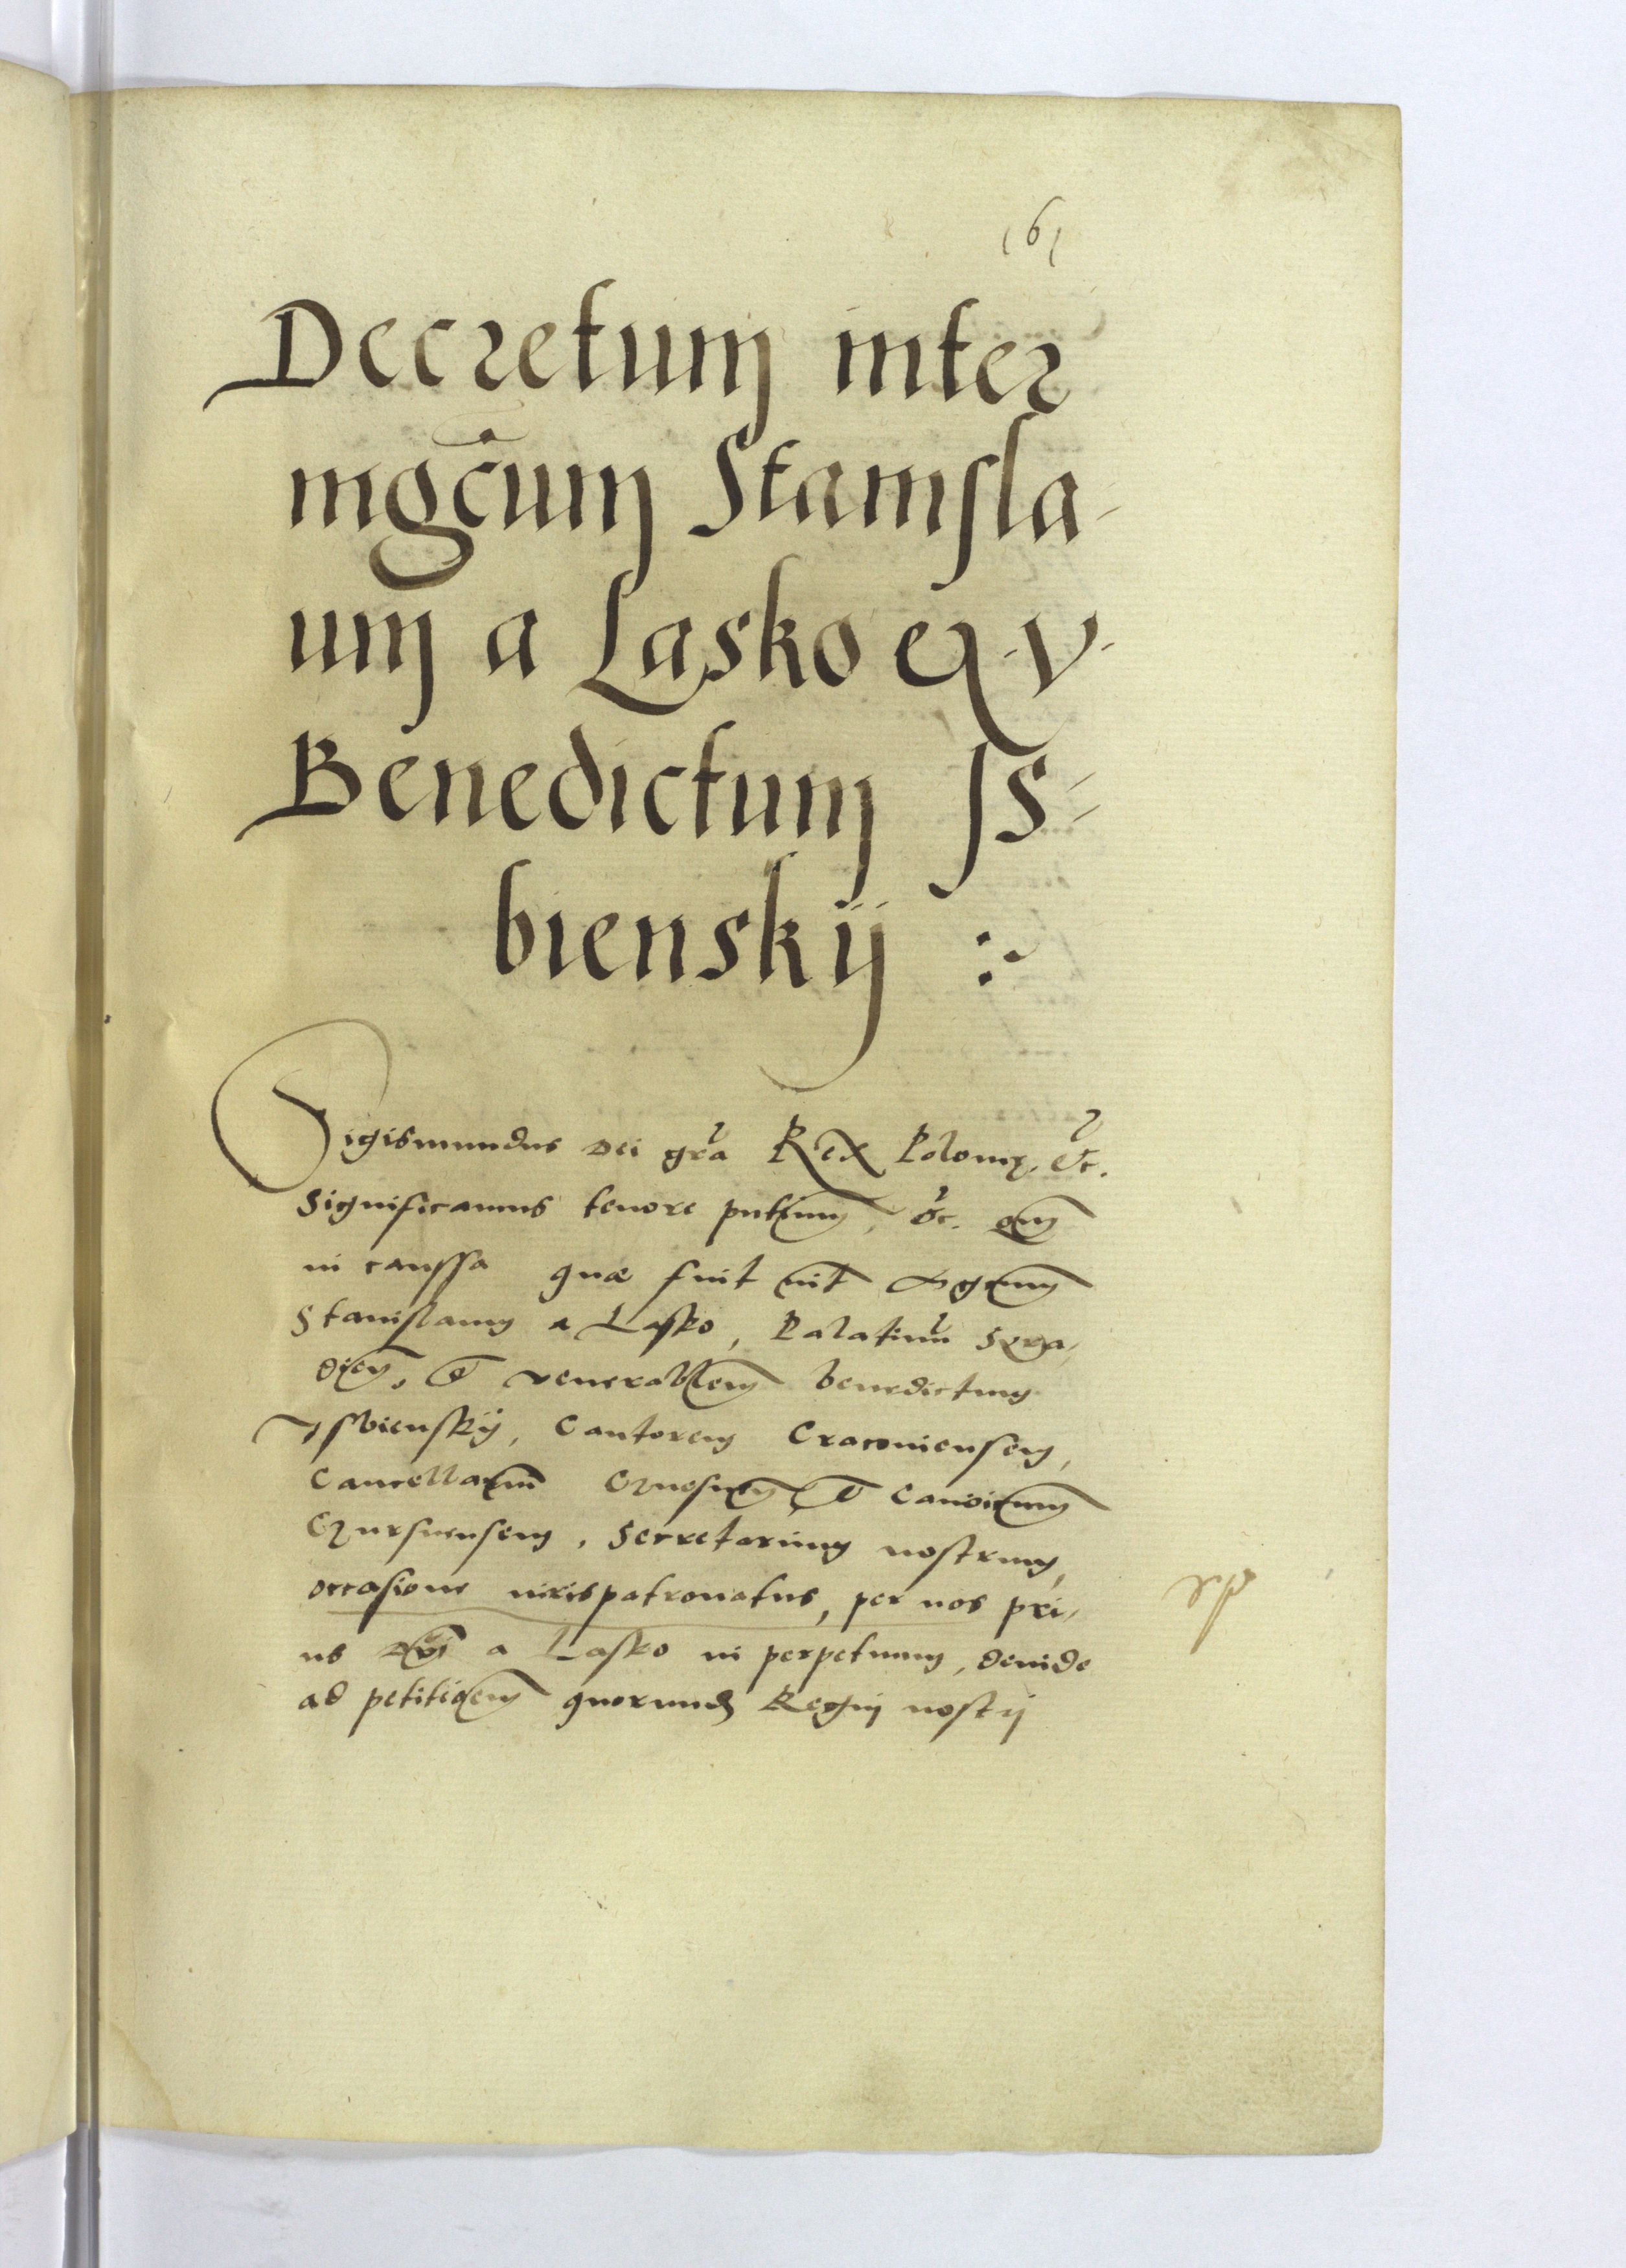 161
Decretum inter
mgcum Stanisla-
um a Lasko et V.
Benedictum Is-
bienskij :~
Sigismundus Dei gra Rex Polonię. &c.
Significamus tenore pntium, &c. qm
in caussa quæ fuit int Mgcum
Stanislaum a Lasko, Palatinum Syra,
dien. & venerablem benedictum
Isbienskij, Cantorem Cracouiensem,
Cancellarium Gznesnen, & Canonicum
Gznesnensem, Secretarium nostrum,
occasione iurispatronatus, per nos pri,
us a Lasko in perpetuum, deinde
ad petitioem quorund Regnj nostrj